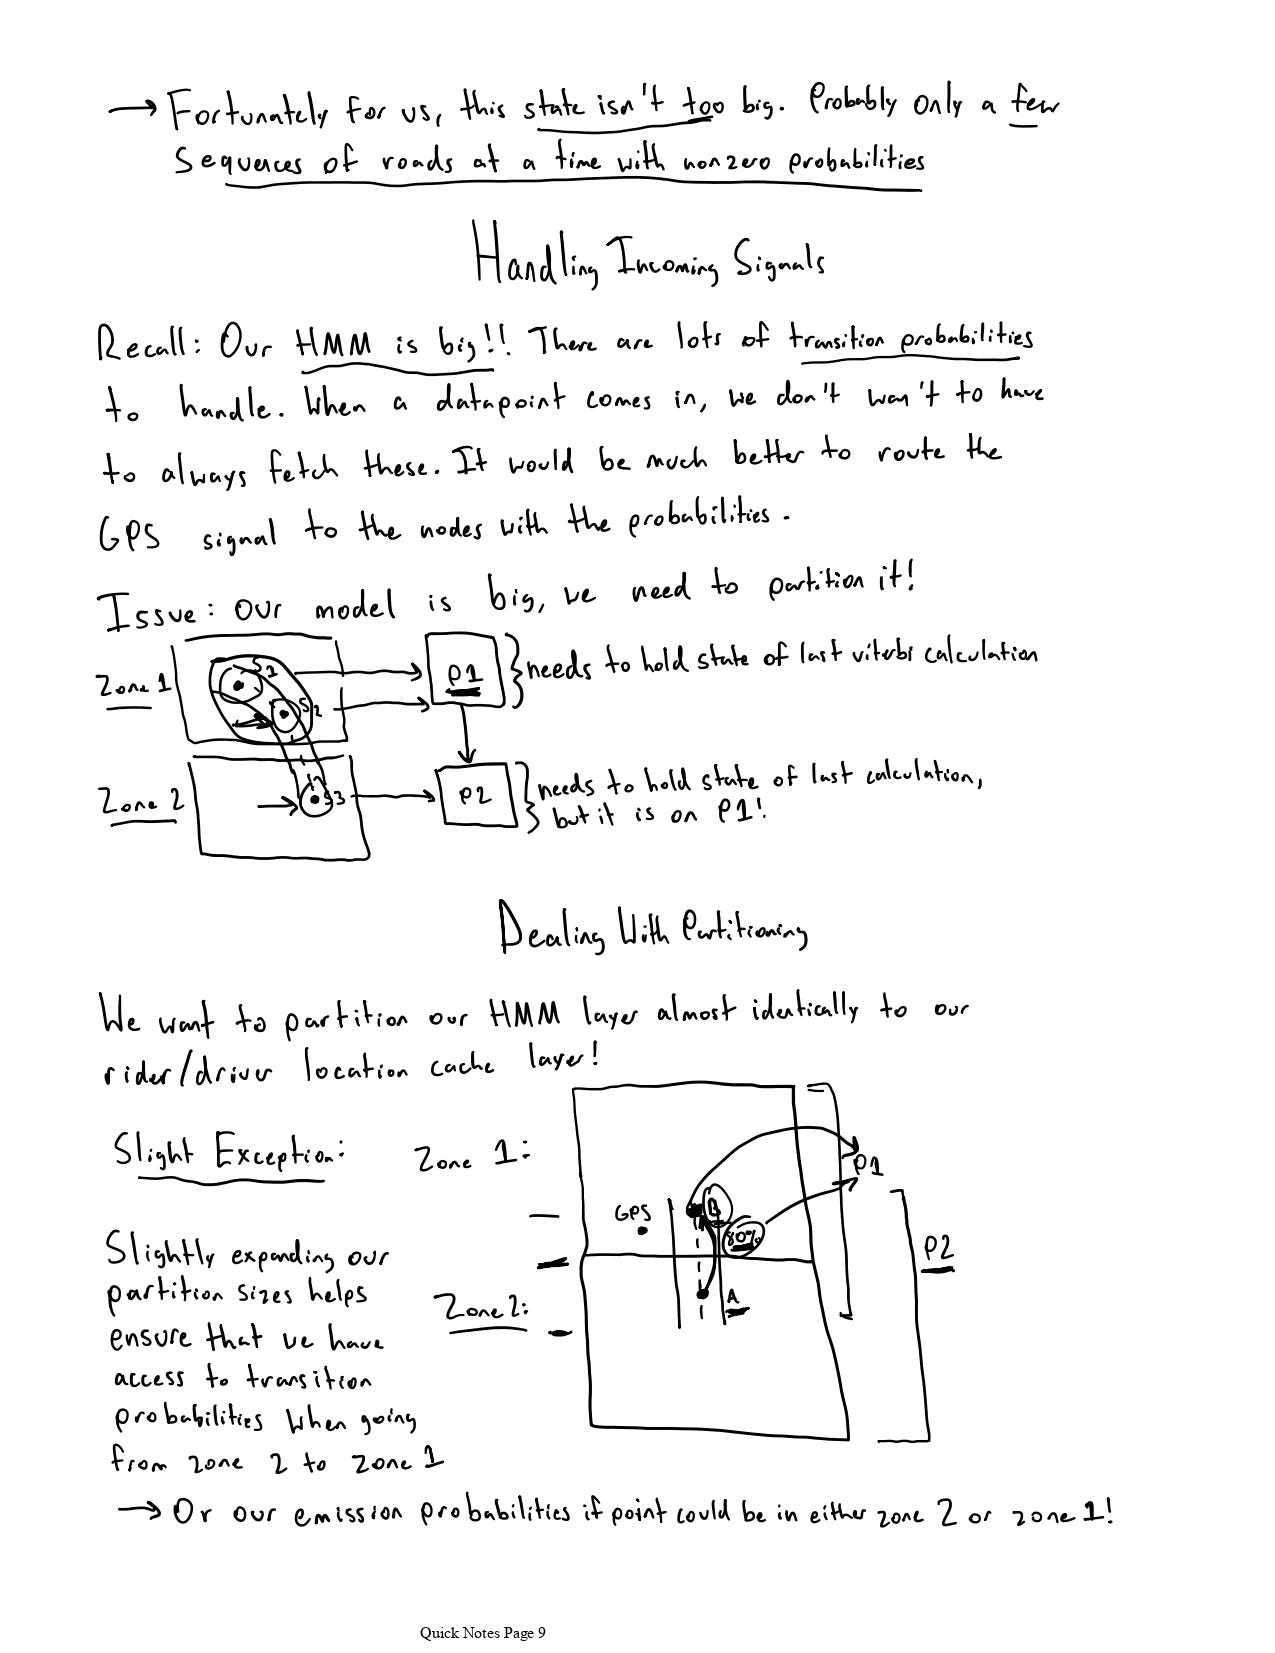 → Fortunately for us, this state isn't too big. Probably only a few
sequences of roads at a time with nonzero probabilities
Handling Incoming Signals
Recall: Our HMM is big!! There are lots of transition probabilities
to handle. When a datapoint comes in, we don't wan't to have
to always fetch these. It would be much better to route the
GPS signal to the nodes with the probabilities.
Issue: our model is big, we need to partition it!
Zone 1
S1
S2
P1
needs to hold state of last viterbi calculation
Zone 2
S3
P2
needs to hold state of last calculation,
but it is on P1!
Dealing With Partitioning
We want to partition our HMM layer almost identically to our
rider/driver location cache layer!
Slight Exception:
Zone 1:
P1
GPS
B
80%
P2
Slightly expanding our
partition sizes helps
Zone 2:
A
ensure that we have
access to transition
probabilities when going
from zone 2 to zone 1
→ Or our emission probabilities if point could be in either zone 2 or zone 1!
Quick Notes Page 9